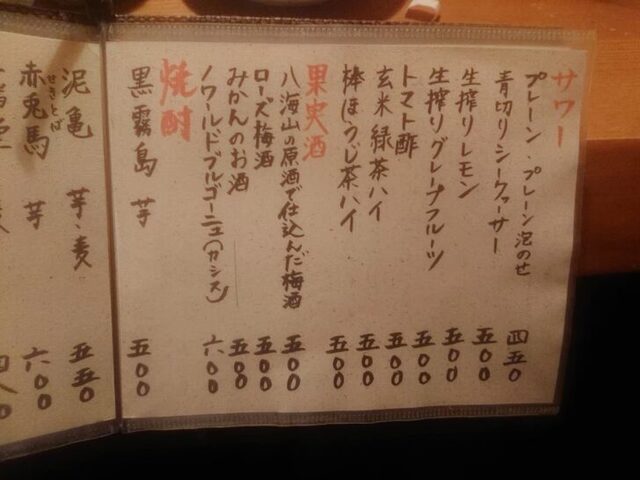 サワー
プレーン、プレーン泡のせ 四五〇
青切りシークヮーサー 五〇〇
生搾りレモン 五〇〇
生搾りグレープフルーツ 五〇〇
トマト酢 五〇〇
玄米緑茶ハイ 五〇〇
棒ほうじ茶ハイ 五〇〇
果実酒
八海山の原酒で仕込んだ梅酒 五〇〇
ローズ梅酒 五〇〇
みかんのお酒 五〇〇
ノワールドブルゴーニュ(カシス) 六〇〇
焼酎
黒霧島 芋 五〇〇
泥亀 芋・麦 五五〇
せきとば
赤兎馬 芋 六〇〇
四八〇